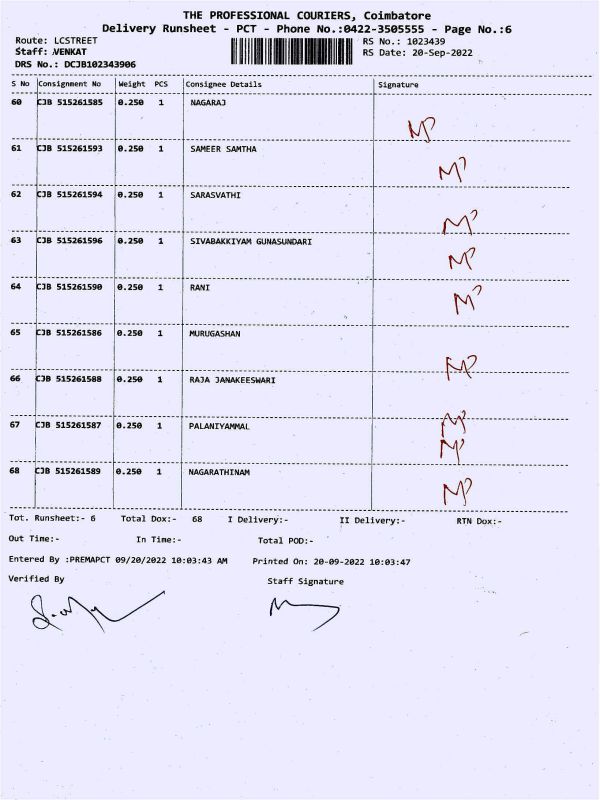 THE PROFESSIONAL COURIERS, Coimbatore
Delivery Runsheet - PCT - Phone No.:0422-3505555 - Page No.:6
Route: LCSTREET RS No.: 1023439
Staff: VENKAT RS Date: 20-Sep-2022
DRS No.: DCJB102343906
S No Consignment No Weight PCS Consignee Details Signature
60 CJB 515261585 0.250 1 NAGARAJ
MP
61 CJB 515261593 0.250 1 SAMEER SAMTHA
MP
62 CJB 515261594 0.250 1 SARASVATHI
MP
63 CJB 515261596 0.250 1 SIVABAKKIYAM GUNASUNDARI
MP
64 CJB 515261590 0.250 1 RANI
MP
65 CJB 515261586 0.250 1 MURUGASHAN
MP
66 CJB 515261588 0.250 1 RAJA JANAKEESWARI
MP
67 CJB 515261587 0.250 1 PALANIYAMMAL
MP
68 CJB 515261589 0.250 1 NAGARATHINAM
MP
Tot. Runsheet:- 6 Total Dox:- 68 I Delivery:- II Delivery:- RTN Dox:-
Out Time:- In Time:- Total POD:-
Entered By :PREMAPCT 09/20/2022 10:03:43 AM Printed On: 20-09-2022 10:03:47
Verified By Staff Signature